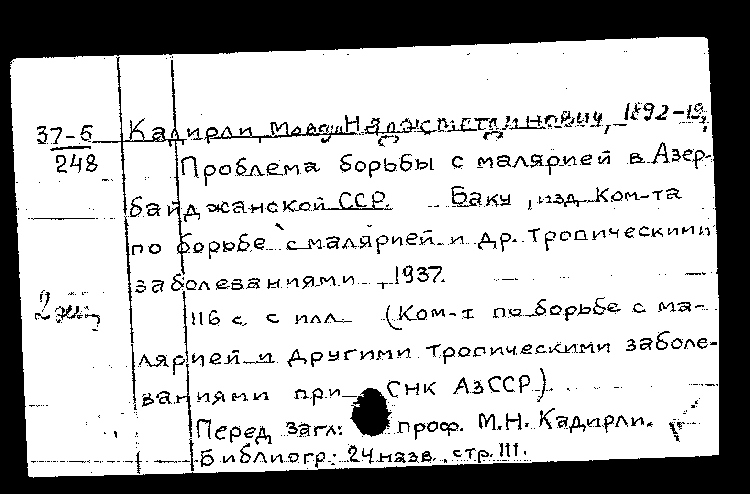 37-5
248
Кадирли, Мовсум Наджметдинович, 1892-19
Проблема борьбы с малярией в Азер-
байджанской ССР. Баку, изд. Ком-та
по борьбе с малярией и др. тропическими
заболеваниями, 1937.
2 экз
116 с. с илл. (Ком-т по борьбе с ма-
лярией и другими тропическими заболе-
ваниями при СНК АзССР).
Перед загл: проф. М.Н. Кадирли.
Библиогр: 24 назв. стр. 111.